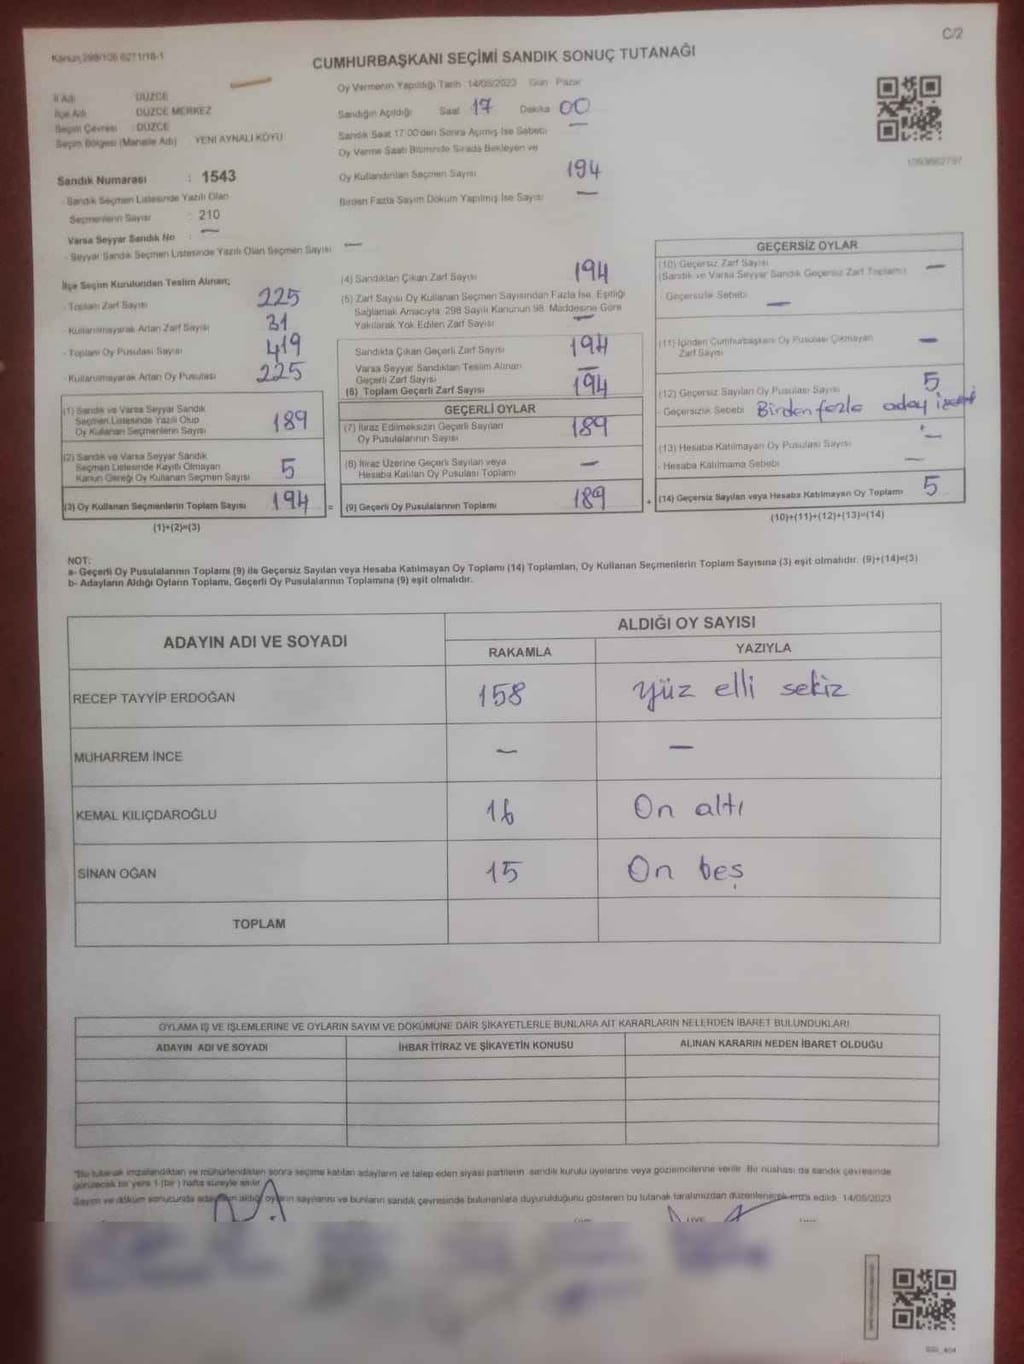 Kanun 298/106 6271/18-1
C/2
CUMHURBAŞKANI SEÇİMİ SANDIK SONUÇ TUTANAĞI
İl Adı DÜZCE
İlçe Adı DÜZCE MERKEZ
Seçim Çevresi : DÜZCE
Seçim Bölgesi (Mahalle Adı) YENİ AYNALI KÖYÜ
Oy Vermenin Yapıldığı Tarih 14/05/2023 Gün Pazar
Sandığın Açıldığı Saat 17 Dakika 00
Sandık Saat 17:00'den Sonra Açılmış İse Sebebi —
Oy Verme Saati Bitiminde Sırada Bekleyen ve
Oy Kullandırılan Seçmen Sayısı 194
Birden Fazla Sayım Döküm Yapılmış İse Sayısı —
Sandık Numarası : 1543
- Sandık Seçmen Listesinde Yazılı Olan
Seçmenlerin Sayısı : 210
Varsa Seyyar Sandık No : —
- Seyyar Sandık Seçmen Listesinde Yazılı Olan Seçmen Sayısı —
İlçe Seçim Kurulundan Teslim Alınan;
- Toplam Zarf Sayısı 225
- Kullanılmayarak Artan Zarf Sayısı 31
- Toplam Oy Pusulası Sayısı 419
- Kullanılmayarak Artan Oy Pusulası 225
(1) Sandık ve Varsa Seyyar Sandık
Seçmen Listesinde Yazılı Olup
Oy Kullanan Seçmenlerin Sayısı 189
(2) Sandık ve Varsa Seyyar Sandık
Seçmen Listesinde Kayıtlı Olmayan
Kanun Gereği Oy Kullanan Seçmen Sayısı 5
(3) Oy Kullanan Seçmenlerin Toplam Sayısı 194
(1)+(2)=(3)
(4) Sandıktan Çıkan Zarf Sayısı 194
(5) Zarf Sayısı Oy Kullanan Seçmen Sayısından Fazla İse, Eşitliği
Sağlamak Amacıyla 298 Sayılı Kanunun 98. Maddesine Göre
Yakılarak Yok Edilen Zarf Sayısı —
Sandıkta Çıkan Geçerli Zarf Sayısı 194
Varsa Seyyar Sandıktan Teslim Alınan
Geçerli Zarf Sayısı —
(6) Toplam Geçerli Zarf Sayısı 194
GEÇERLİ OYLAR
(7) İtiraz Edilmeksizin Geçerli Sayılan
Oy Pusulalarının Sayısı 189
(8) İtiraz Üzerine Geçerli Sayılan veya
Hesaba Katılan Oy Pusulası Toplamı —
= (9) Geçerli Oy Pusulalarının Toplamı 189
GEÇERSİZ OYLAR
(10) Geçersiz Zarf Sayısı
(Sandık ve Varsa Seyyar Sandık Geçersiz Zarf Toplamı) —
Geçersizlik Sebebi —
(11) İçinden Cumhurbaşkanı Oy Pusulası Çıkmayan
Zarf Sayısı —
(12) Geçersiz Sayılan Oy Pusulası Sayısı 5
- Geçersizlik Sebebi Birden fazla aday
(13) Hesaba Katılmayan Oy Pusulası Sayısı —
- Hesaba Katılmama Sebebi —
+ (14) Geçersiz Sayılan veya Hesaba Katılmayan Oy Toplamı 5
(10)+(11)+(12)+(13)=(14)
NOT:
a- Geçerli Oy Pusulalarının Toplamı (9) ile Geçersiz Sayılan veya Hesaba Katılmayan Oy Toplamı (14) Toplamları, Oy Kullanan Seçmenlerin Toplam Sayısına (3) eşit olmalıdır. (9)+(14)=(3)
b- Adayların Aldığı Oyların Toplamı, Geçerli Oy Pusulalarının Toplamına (9) eşit olmalıdır.
ADAYIN ADI VE SOYADI
ALDIĞI OY SAYISI
RAKAMLA YAZIYLA
RECEP TAYYİP ERDOĞAN 158 Yüz elli sekiz
MUHARREM İNCE — —
KEMAL KILIÇDAROĞLU 16 On altı
SİNAN OĞAN 15 On beş
TOPLAM
OYLAMA İŞ VE İŞLEMLERİNE VE OYLARIN SAYIM VE DÖKÜMÜNE DAİR ŞİKAYETLERLE BUNLARA AİT KARARLARIN NELERDEN İBARET BULUNDUKLARI
ADAYIN ADI VE SOYADI İHBAR İTİRAZ VE ŞİKAYETİN KONUSU ALINAN KARARIN NEDEN İBARET OLDUĞU
*Bu tutanak imzalandıktan ve mühürlendikten sonra seçime katılan adayların ve talep eden siyasi partilerin sandık kurulu üyelerine veya gözlemcilerine verilir. Bir nüshası da sandık çevresinde
görülecek bir yere 1 (bir) hafta süreyle asılır.
Sayım ve döküm sonucunda adayların aldığı oyların sayılarını ve bunların sandık çevresinde bulunanlara duyurulduğunu gösteren bu tutanak tarafımızdan düzenlenerek imza edildi. 14/05/2023